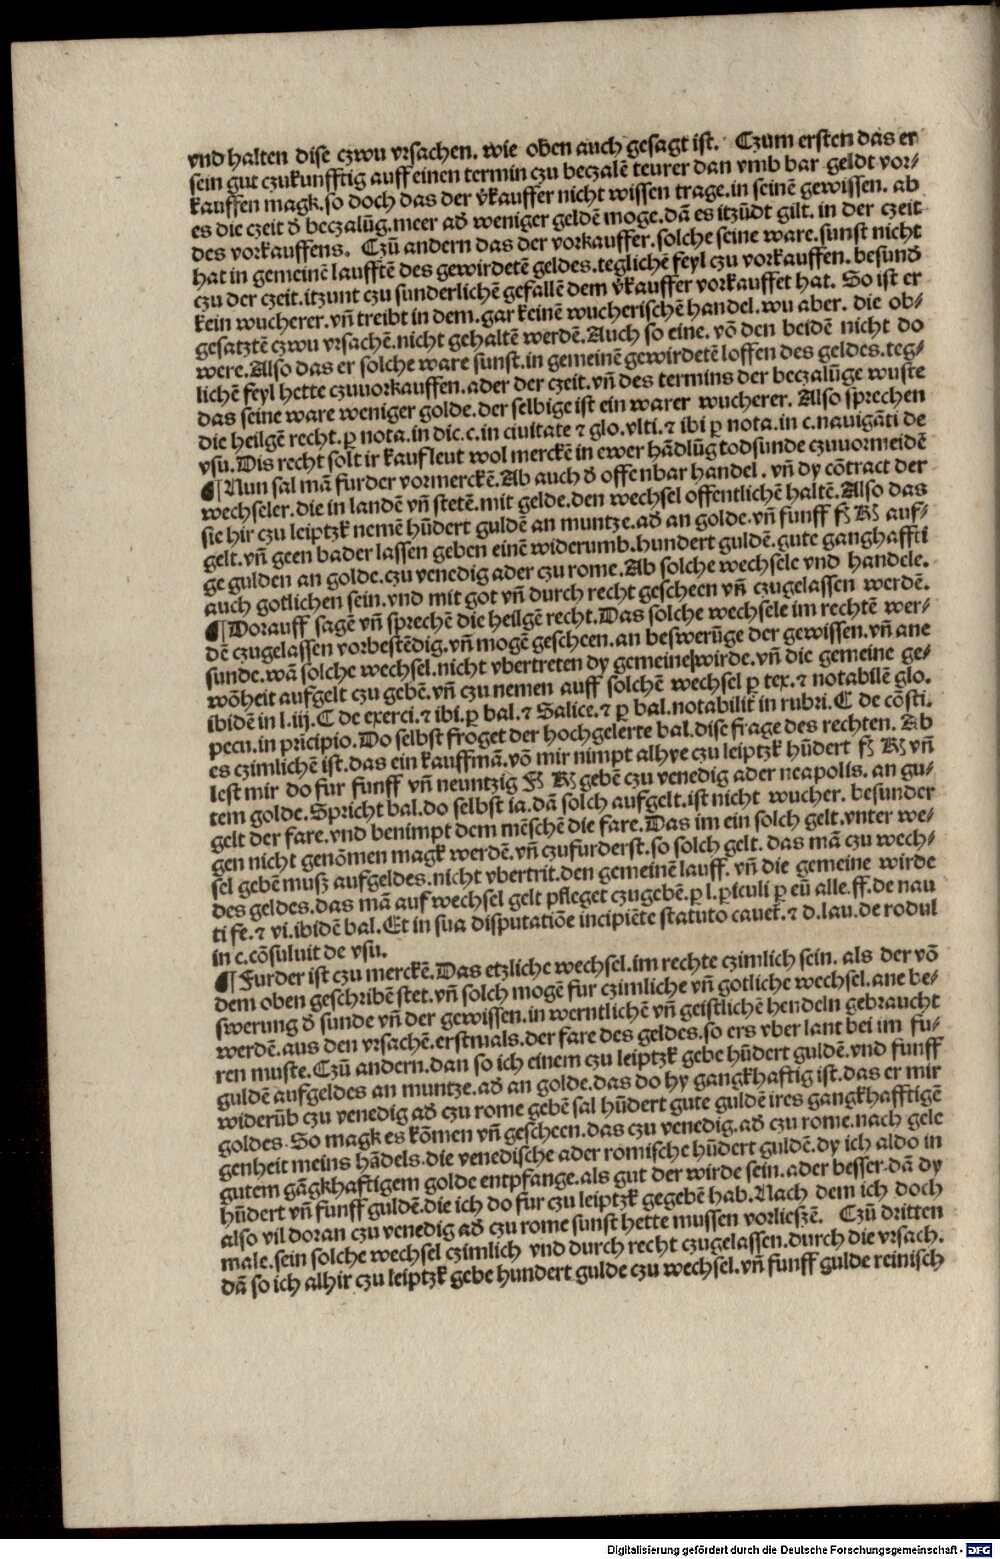 vnd halten dise czwu vrsachen. wie oben auch gesagt ist. Czum ersten das er
sein gut czukunfftig auff einen termin czu beczalē teurer dan vmb bar geldt vor⸗
kauffen magk. so doch das der v̄kauffer nicht wissen trage. in seinē gewissen. ab
es die czeit d̄ beczalūg. meer ad̄ weniger geldē moge. dā es itzūdt gilt. in der czeit
des vorkauffens. Czū andern das der vorkauffer. solche seine ware. sunst nicht
hat in gemeinē laufftē des gewirdetē geldes. teglichē feyl czu vorkauffen. besund̄
czu der czeit. itzunt czu sunderlichē gefallē dem v̄kauffer vorkauffet hat. So ist er
kein wucherer. vn̄ treibt in dem. gar keinē wucherischē handel. wu aber. die ob⸗
gesatztē czwu vrsachē. nicht gehaltē werdē. Auch so eine. vō den beidē nicht do
were. Also das er solche ware sunst. in gemeinē gewirdetē loffen des geldes. teg⸗
lichē feyl hette czuuorkauffen. ader der czeit. vn̄ des termins der beczalūge wuste
das seine ware weniger golde. der selbige ist ein warer wucherer. Also sprechen
die heilgē recht. ꝑ nota. in dic. c. in ciuitate ⁊ glo. vlti. ⁊ ibi ꝑ nota. in c. nauigāti de
vsu. Dis recht solt ir kaufleut wol merckē in ewer hādlūg todsunde czuuormeidē
¶ Nun sal mā furder vormerckē. Ab auch d̄ offenbar handel. vn̄ dy cōtract der
wechseler. die in landē vn̄ stetē. mit gelde. den wechsel offentlichē haltē. Also das
sie hir czu leiptzk nemē hūdert guldē an muntze. ad̄ an golde. vn̄ funff auf⸗
gelt. vn̄ geen bader lassen geben einē widerumb. hundert guldē. gute ganghaffti
ge gulden an golde. czu venedig ader czu rome. Ab solche wechsele vnd handele.
auch gotlichen sein. vnd mit got vn̄ durch recht gescheen vn̄ czugelassen werdē.
¶ Dorauff sagē vn̄ sprechē die heilgē recht. Das solche wechsele im rechtē wer⸗
dē czugelassen vorbestēdig. vn̄ mogē gescheen. an beswerūge der gewissen. vn̄ ane
sunde. wā solche wechsel. nicht vbertreten dy gemeine wirde. vn̄ die gemeine ge⸗
wōheit aufgelt czu gebē. vn̄ czu nemen auff solchē wechsel ꝑ tex. ⁊ notabilē glo.
ibidē in l. iij. C de exerci. ⁊ ibi. ꝑ bal. ⁊ Salice. ⁊ ꝑ bal. notabilit̄ in rubri. C de cōsti.
pecu. in prīcipio. Do selbst froget der hochgelerte bal. dise frage des rechten. Ab
es czimlichē ist. das ein kauffmā. vō mir nimpt alhye czu leiptzk hūdert vn̄
lest mir do fur funff vn̄ neuntzig gebē czu venedig ader neapolis. an gu⸗
tem golde. Spricht bal. do selbst ia. dā solch aufgelt. ist nicht wucher. besunder
gelt der fare. vnd benimpt dem mēschē die fare. Das im ein solch gelt. vnter we⸗
gen nicht genōmen magk werdē. vn̄ czufurderst. so solch gelt. das mā czu wech⸗
sel gebē musz aufgeldes. nicht vbertrit. den gemeinē lauff. vn̄ die gemeine wirde
des geldes. das mā auf wechsel gelt pfleget czugebē. ꝑ l. ꝑiculi ꝑ eū alle. ff. de nau
ti fe. ⁊ vi. ibidē bal. Et in sua disputatiōe incipiēte statuto cauet̄. ⁊ d. lau. de rodul
in c. cōsuluit de vsu.
¶ Furder ist czu merckē. Das etzliche wechsel. im rechte czimlich sein. als der vō
dem oben geschribē stet. vn̄ solch mogē fur czimliche vn̄ gotliche wechsel. ane be⸗
swerung d̄ sunde vn̄ der gewissen. in werntlichē vn̄ geistlichē hendeln gebraucht
werdē. aus den vrsachē. erstmals. der fare des geldes. so ers vber lant bei im fu⸗
ren muste. Czū andern. dan so ich einem czu leiptzk gebe hūdert guldē. vnd funff
guldē aufgeldes an muntze. ad̄ an golde. das do hy gangkhaftig ist. das er mir
widerūb czu venedig ad̄ czu rome gebē sal hūdert gute guldē ires gangkhafftigē
goldes. So magk es kōmen vn̄ gescheen. das czu venedig. ad̄ czu rome. nach gele
genheit meins hādels. die venedische ader romische hūdert guldē. dy ich aldo in
gutem gāgkhaftigem golde entpfange. als gut der wirde sein. ader besser. dā dy
hūdert vn̄ funff guldē. die ich do fur czu leiptzk gegebē hab. Nach dem ich doch
also vil doran czu venedig ad̄ czu rome sunst hette mussen vorlieszē. Czū dritten
male. sein solche wechsel czimlich vnd durch recht czugelassen. durch die vrsach.
dā so ich alhir czu leiptzk gebe hundert gulde czu wechsel. vn̄ funff gulde reinisch
Digitalisierung gefördert durch die Deutsche Forschungsgemeinschaft - DFG